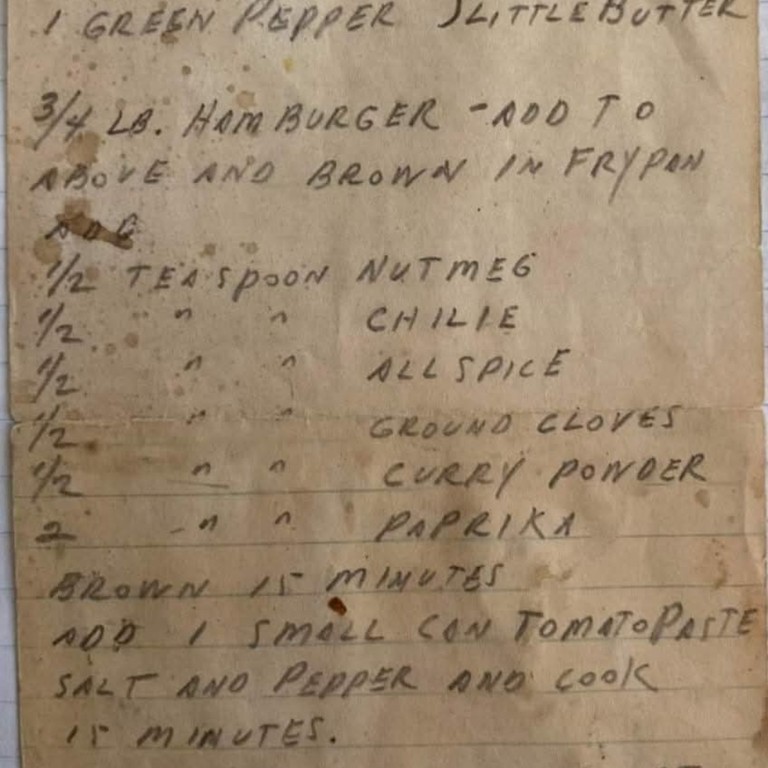 1 GREEN PEPPER } LITTLE BUTTER
3/4 LB. HAMBURGER - ADD TO
ABOVE AND BROWN IN FRYPAN
ADD
1/2 TEASPOON NUTMEG
1/2 " " CHILIE
1/2 " " ALLSPICE
1/2 " " GROUND CLOVES
1/2 " " CURRY POWDER
2 - " " PAPRIKA
BROWN 15 MINUTES
ADD 1 SMALL CAN TOMATO PASTE
SALT AND PEPPER AND COOK
15 MINUTES.